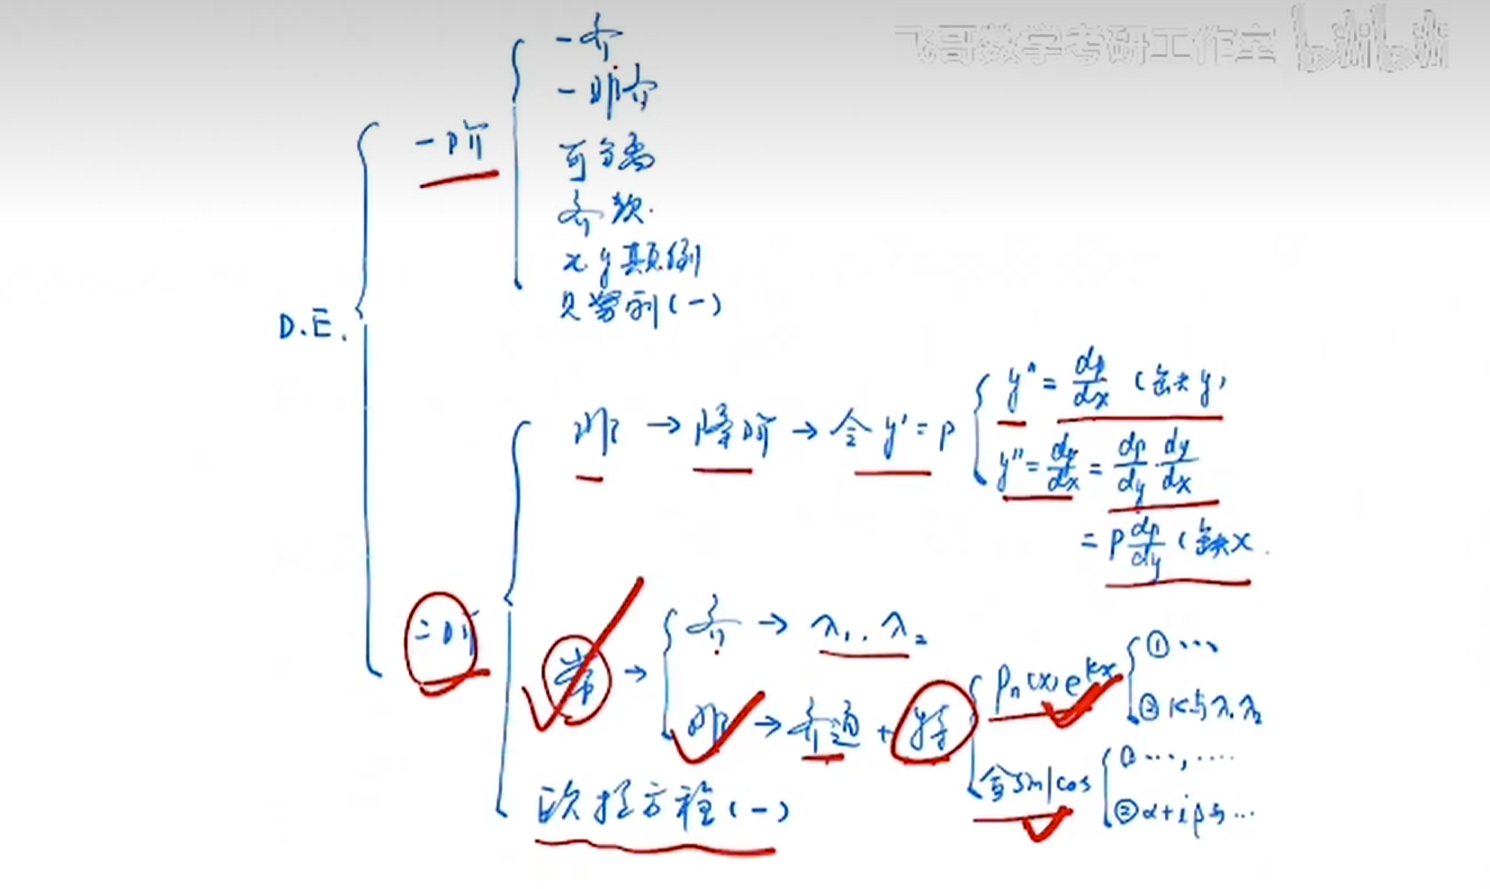 飞哥数学考研工作室 bilibili
D.E.
一阶
一齐
一非齐
可分离
齐次
x.y颠倒
贝努利(一)
二阶
非 → 降阶 → 令 y' = p
y" = dp/dx (缺y)
y" = dp/dx = dp/dy · dy/dx
= p dp/dy (缺x
常 →
齐 → λ₁.. λ₂
非 → 齐通 + 特
Pn(x) e^kx
① ...
② k与λ₁λ₂
含sin/cos
① ..., ....
② α+iβ与...
欧拉方程(一)